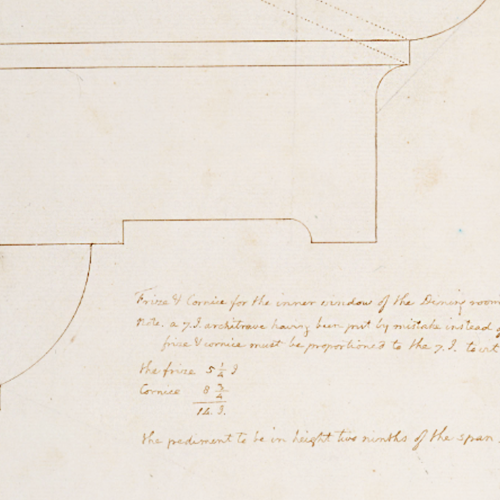 Frize & Cornice for the inner window of the Dining room
Note. a 7.I. architrave having been put by mistake instead of
frize & cornice must be proportioned to the 7.I. to wit
the frize 5 1/4 I
Cornice 8 3/4
14.I.
the pediment to be in height two ninths of the span.